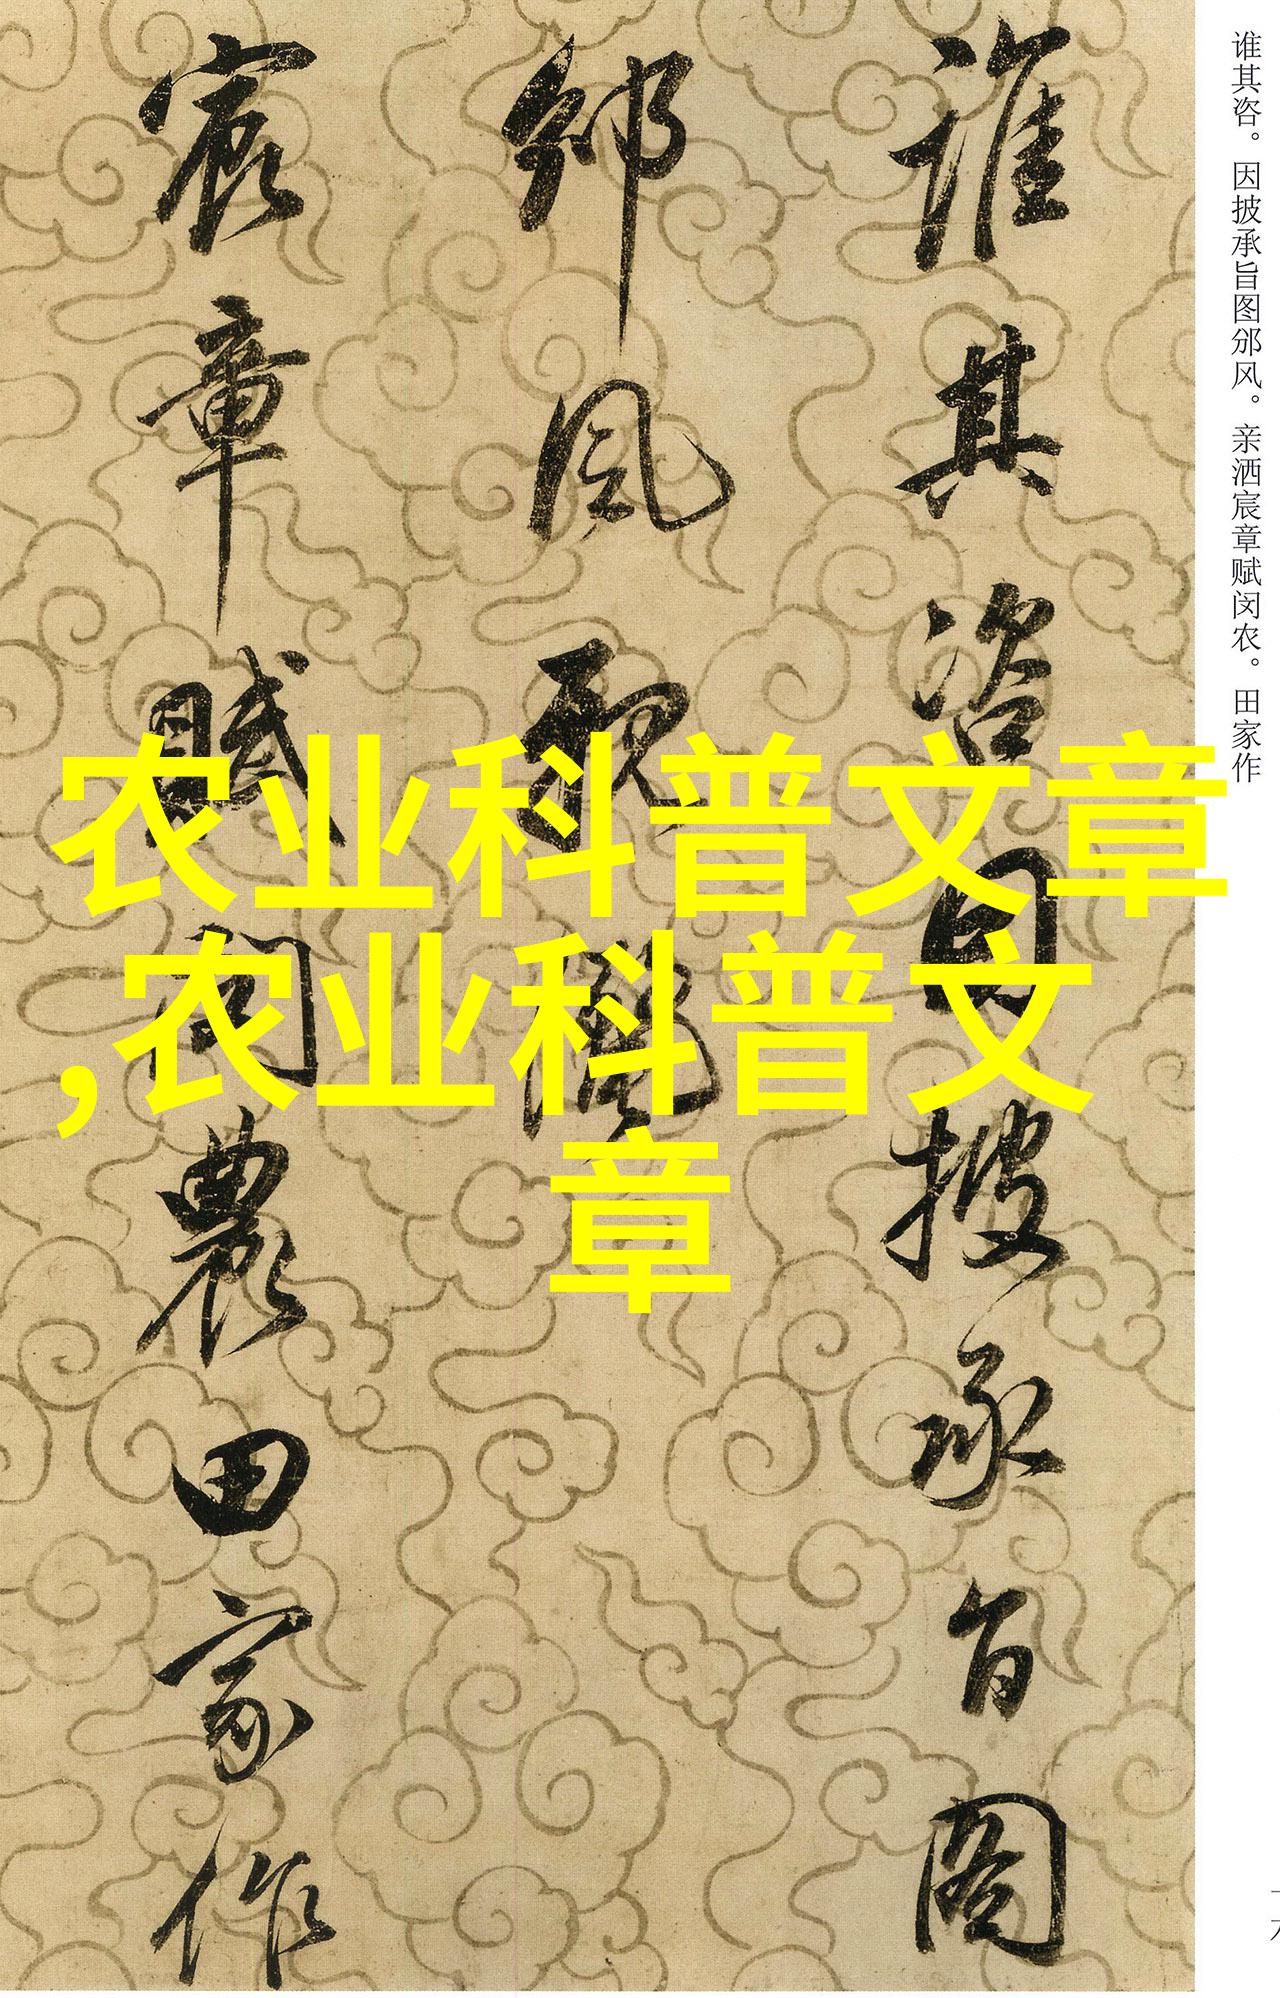 谁其咨。因披承旨图邠风。亲洒宸章赋闵农。田家作
誰其咨因披承旨圖
邠風親灑
宸章賦閔農田家作
农业科普文章
,农业科普文
章